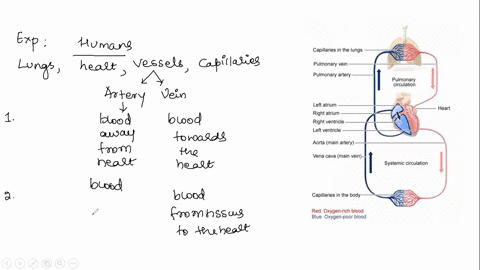 Exp: Humans
Lungs, heart, vessels, Capillaries
Artery Vein
1. blood away from heart
blood towards the heart
2. blood
blood from tissues to the heart
Capillaries in the lungs
Pulmonary vein
Pulmonary artery
Pulmonary circulation
Left atrium
Right atrium
Right ventricle
Left ventricle
Heart
Aorta (main artery)
Vena cava (main vein)
Systemic circulation
Capillaries in the body
Red: Oxygen-rich blood
Blue: Oxygen-poor blood